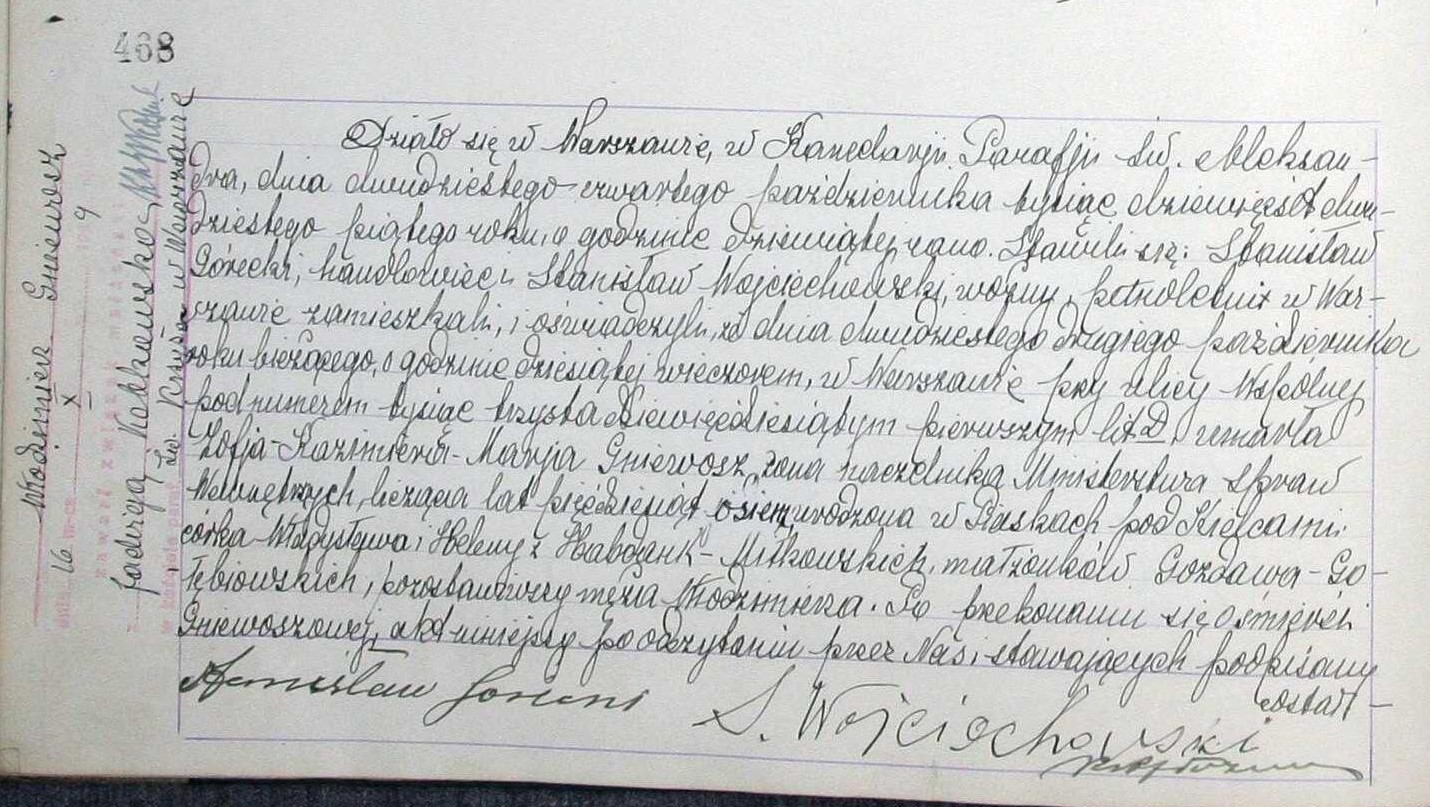 468
Działo się w Warszawie, w Kancelarji Parafji św. Aleksan-
dra, dnia dwudziestego czwartego października tysiąc dziewięćset dwu-
dziestego piątego roku, o godzinie dziewiątej rano. Stawili się: Stanisław
Górecki, handlowiec i Stanisław Wojciechowski, woźny, pełnoletni w War-
szawie zamieszkali, i oświadczyli, że dnia dwudziestego drugiego października
roku bieżącego, o godzinie dziesiątej wieczorem, w Warszawie przy ulicy Wspólnej
pod numerem tysiąc trzysta dziewięćdziesiątym pierwszym lit. D, umarła
Zofja-Kazimiera-Marja Gniewosz, żona naczelnika Ministerstwa Spraw
Wewnętrznych, licząca lat pięćdziesiąt osiem, urodzona w Piaskach pod Kielcami
córka Władysława i Heleny z Habdank-Mitkowskich, małżonków Gozdawa-Go-
łębiowskich, pozostawiwszy męża Włodzimierza. Po przekonaniu się o śmierci
Gniewoszowej, akt niniejszy po odczytaniu przez Nas i stawających podpisany
został
Stanisław
S. Wojciechowski
Włodzimierz Gniewosz
16 m-ca X
zawarł związek małżeński
Jadwigą
w kościele paraf. Św. Krzyża w Warszawie